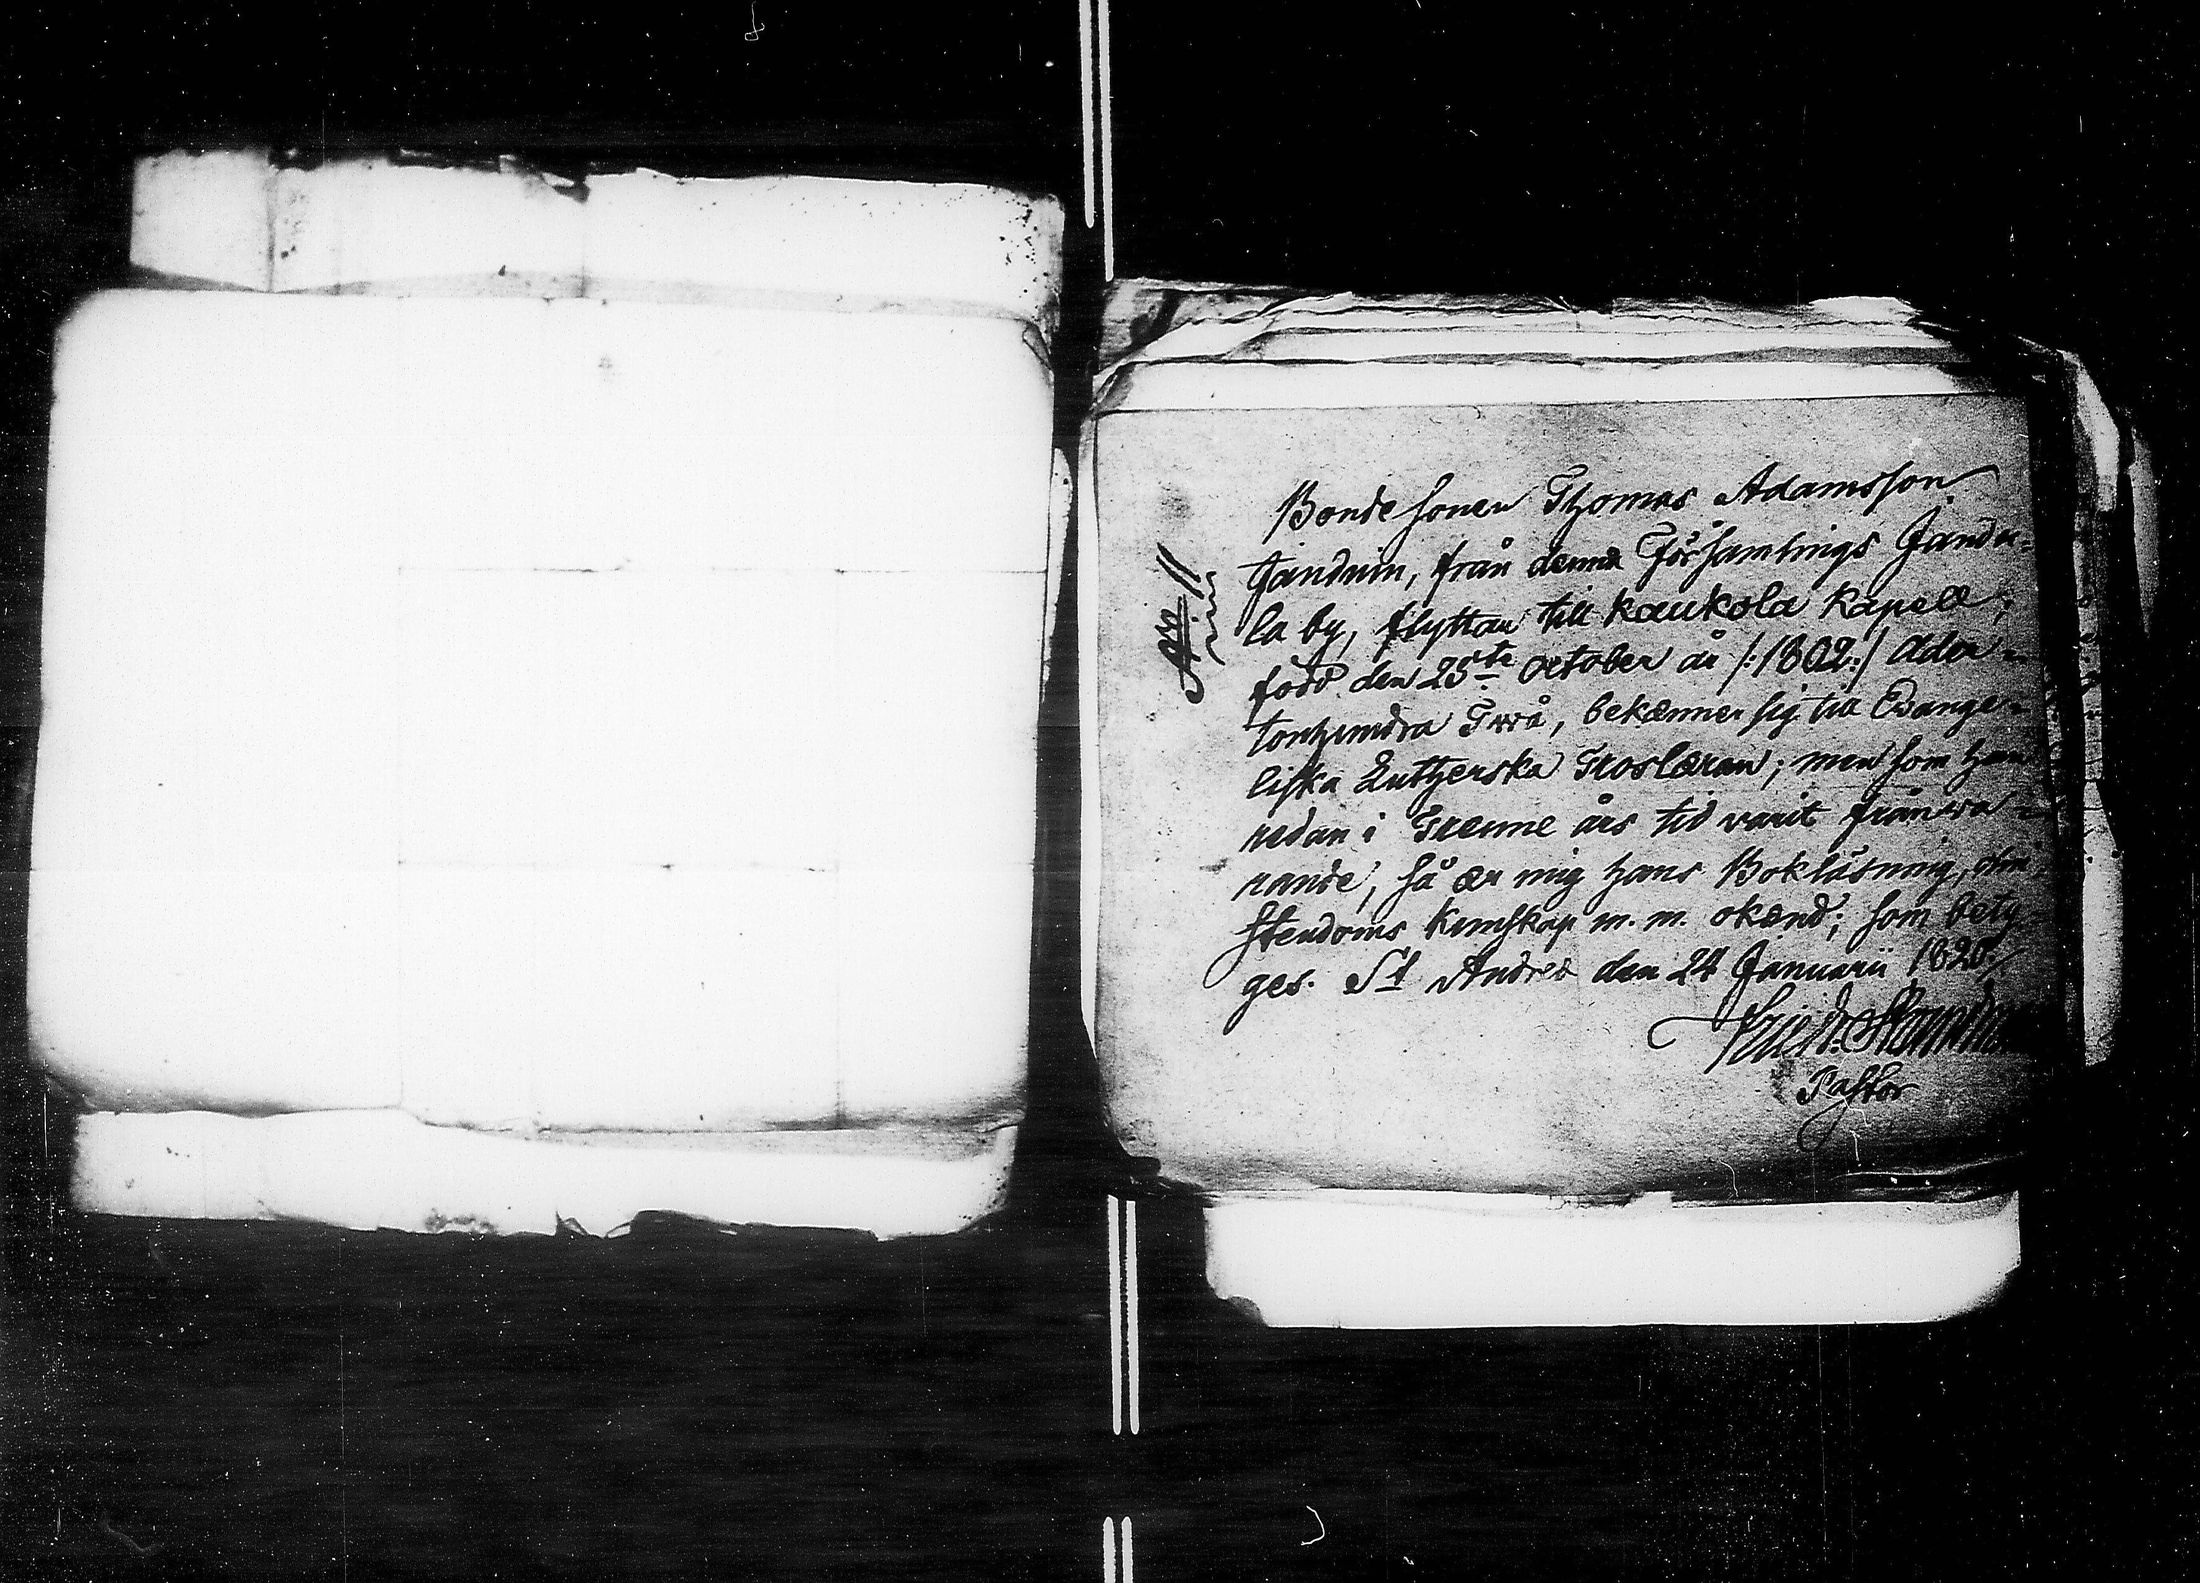 Bonde sonen Thomas Adamsson
Janduin, från denna Församlings Jandu-
la by, flyttar till Kaukola Kapell;
född den 25te October år /:1802:/ Ader-
tonhundra Twå, bekænner sig till Evange-
liska Lutherska Troslæran; men som han
redan i Trenne års tid varit frånva-
rande, så ær mig hans Bokläsning, chri-
stendoms Kunskap m. m. okænd; som bety-
ges. St Andreæ den 24 Januarii 1820.
Pastor
11